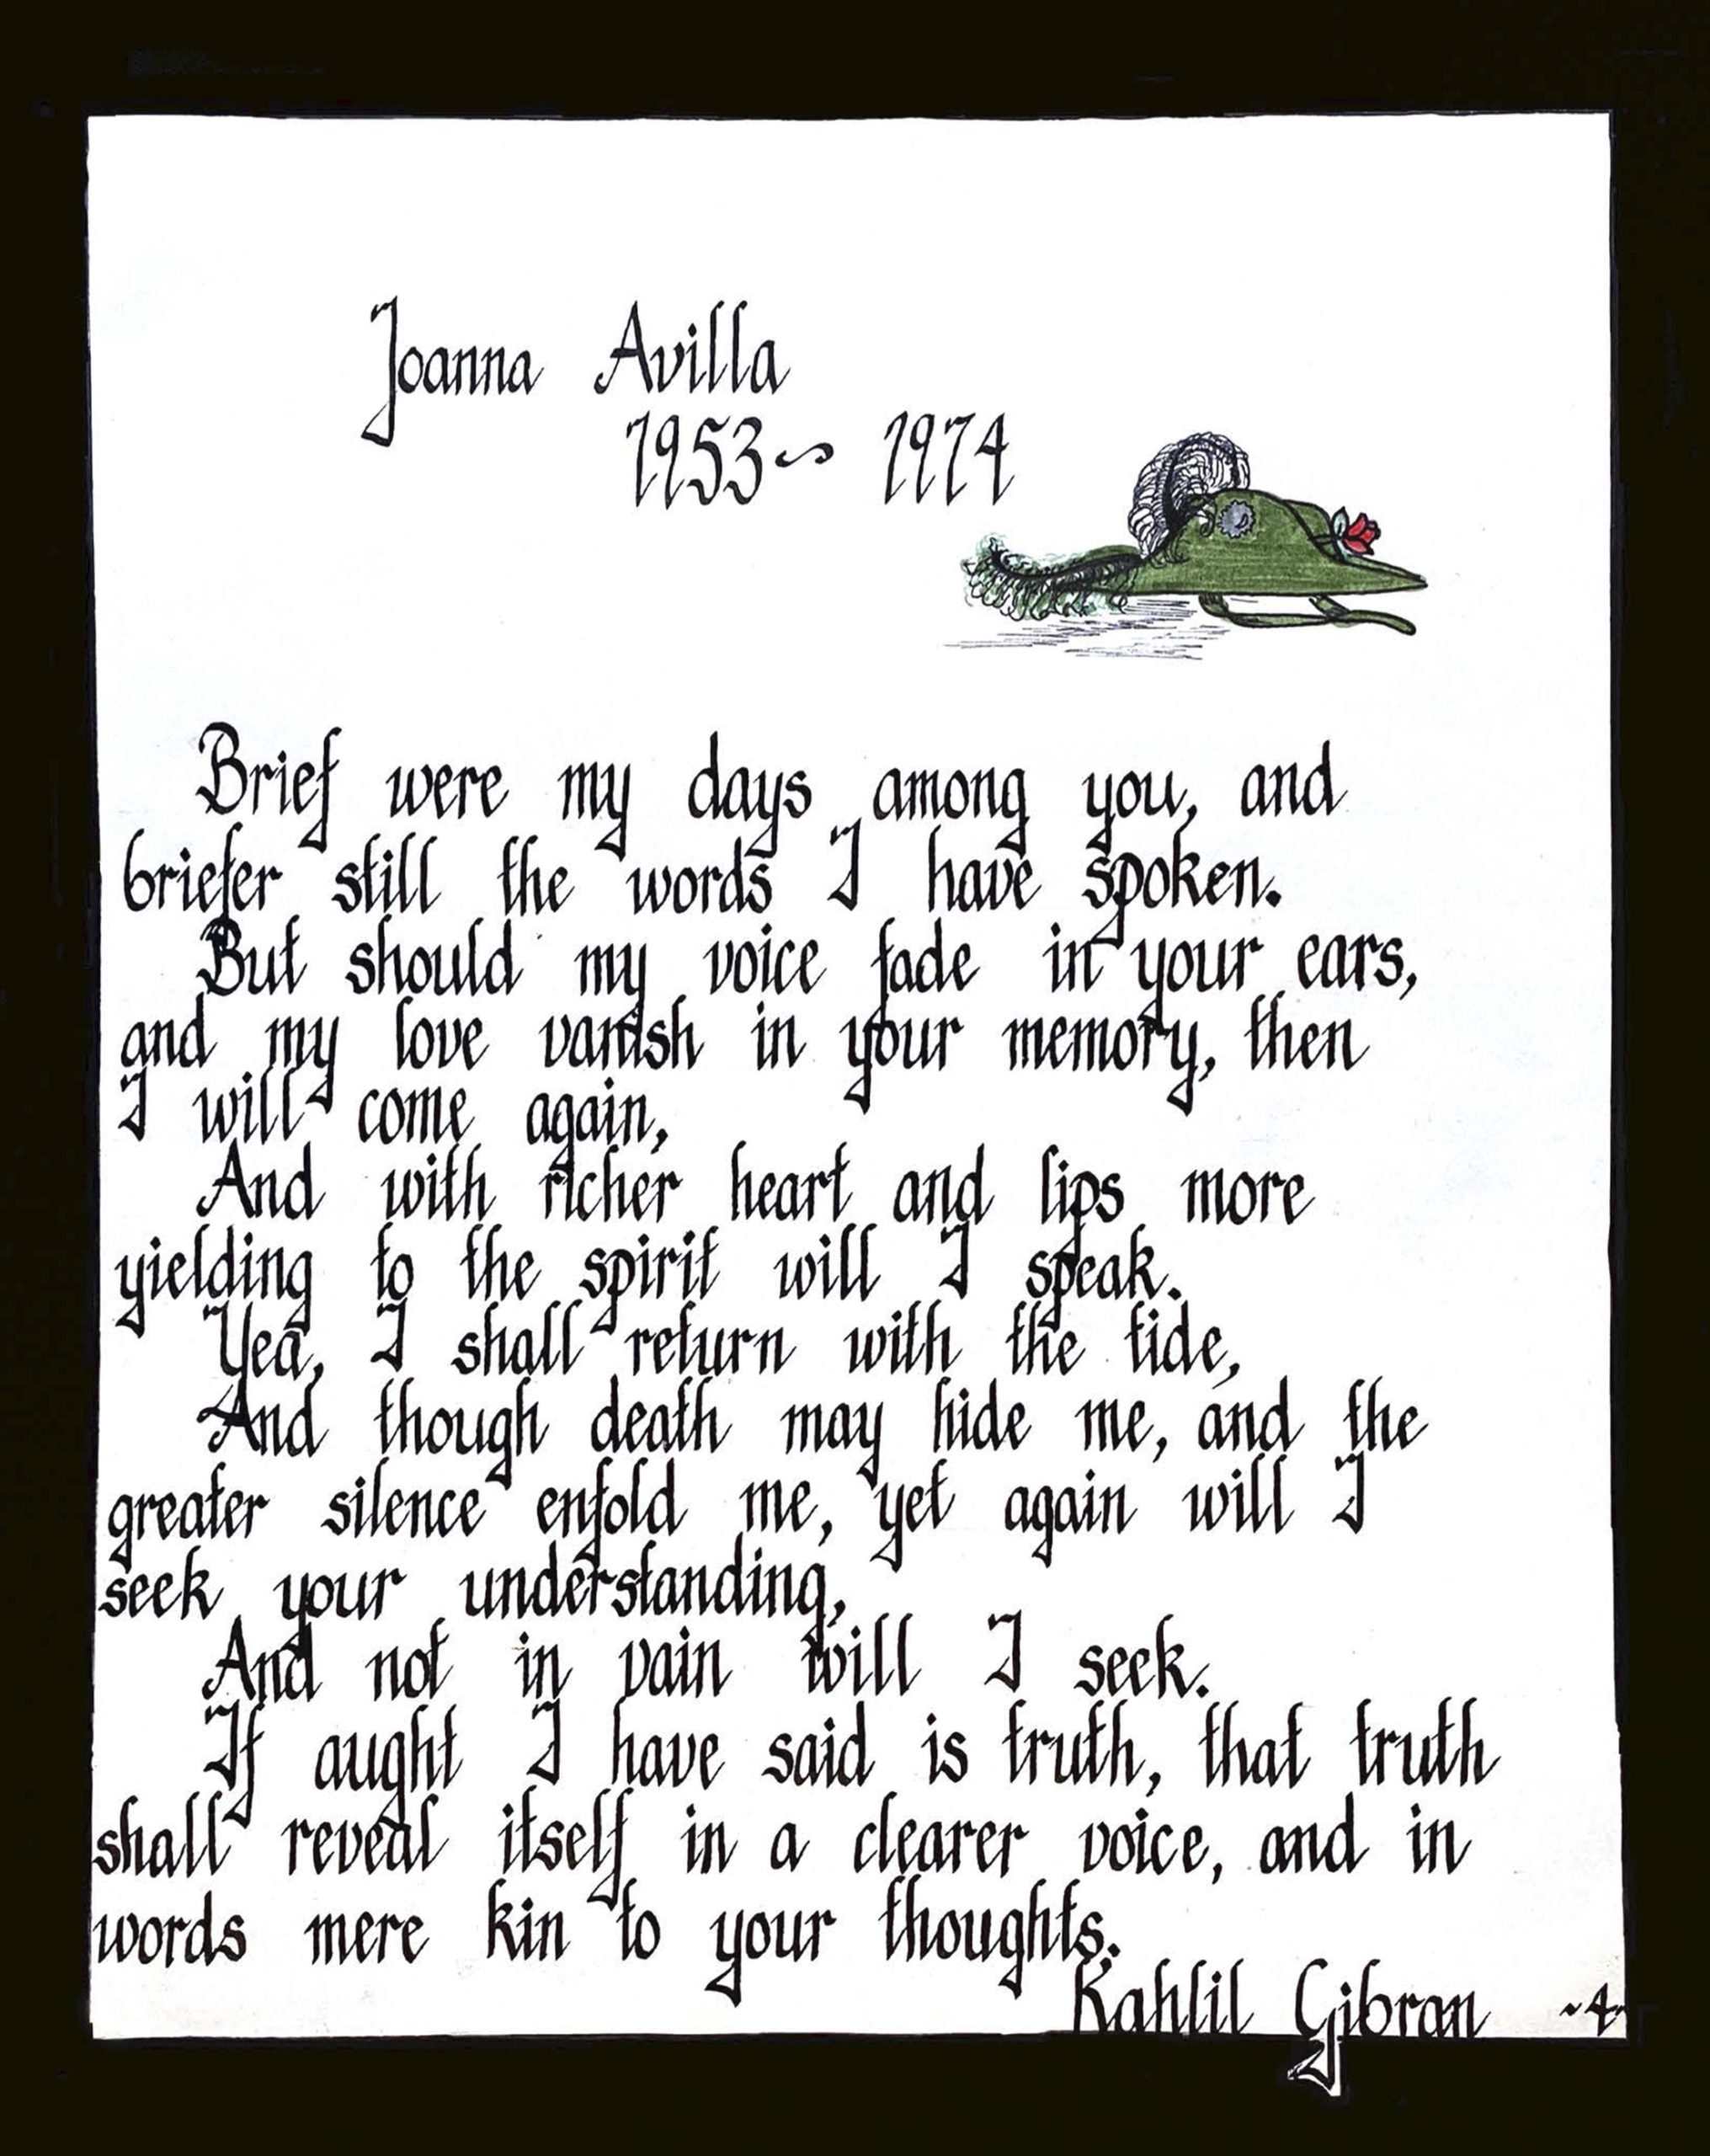 Joanna Avilla
1953~ 1974
Brief were my days among you, and
briefer still the words I have spoken.
But should my voice fade in your ears,
and my love vanish in your memory, then
I will come again,
And with richer heart and lips more
yielding to the spirit will I speak.
Yea, I shall return with the tide,
And though death may hide me, and the
greater silence enfold me, yet again will I
seek your understanding,
And not in vain will I seek.
If aught I have said is truth, that truth
shall reveal itself in a clearer voice, and in
words mere kin to your thoughts.
Kahlil Gibran ~4~